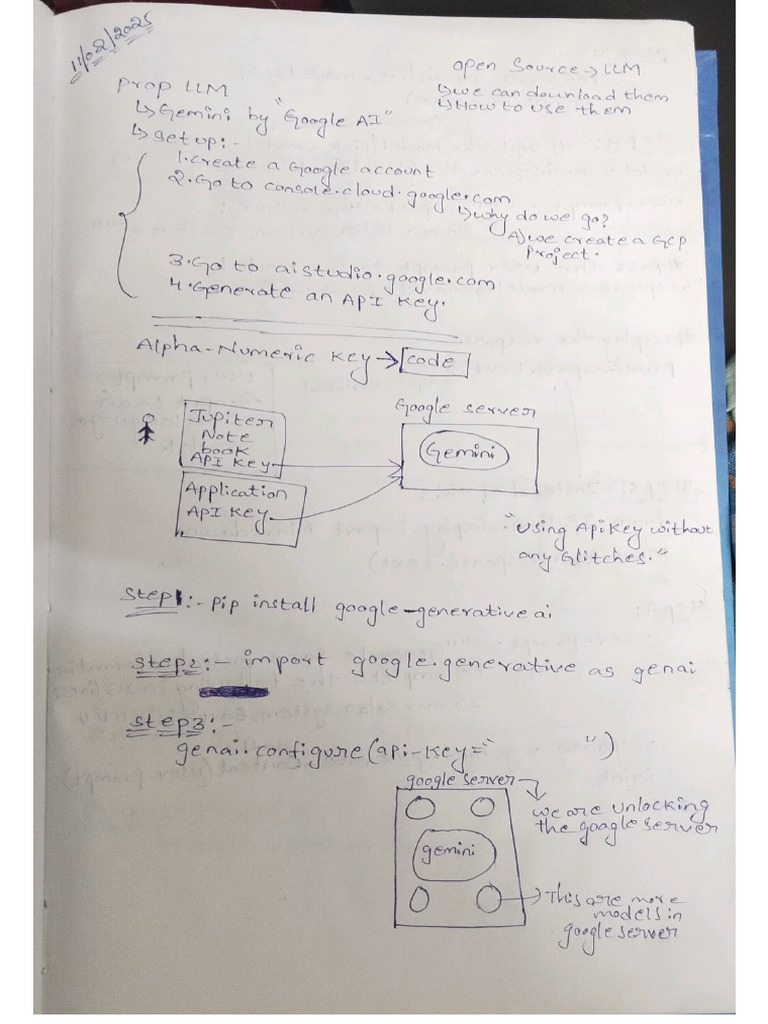 11/02/2025
Prop LLM
↳Gemini by "Google AI"
↳setup:-
open source→LLM
↳we can download them
↳How to use them
1.create a Google account
2.Go to console.cloud.google.com
↳why do we go?
A)we create a GCP
project.
3.Go to aistudio.google.com
4.Generate an API Key.
Alpha-Numeric Key→code
Google server
Jupiter
Note
book
API Key
Gemini
Application
API Key
"using ApiKey without
any Glitches."
Step1:- pip install google-generativeai
step2:- import google.generative as genai
step3:-
genai.configure(api-key="     ")
google server
we are unlocking
the google server
gemini
This are more
models in
google server